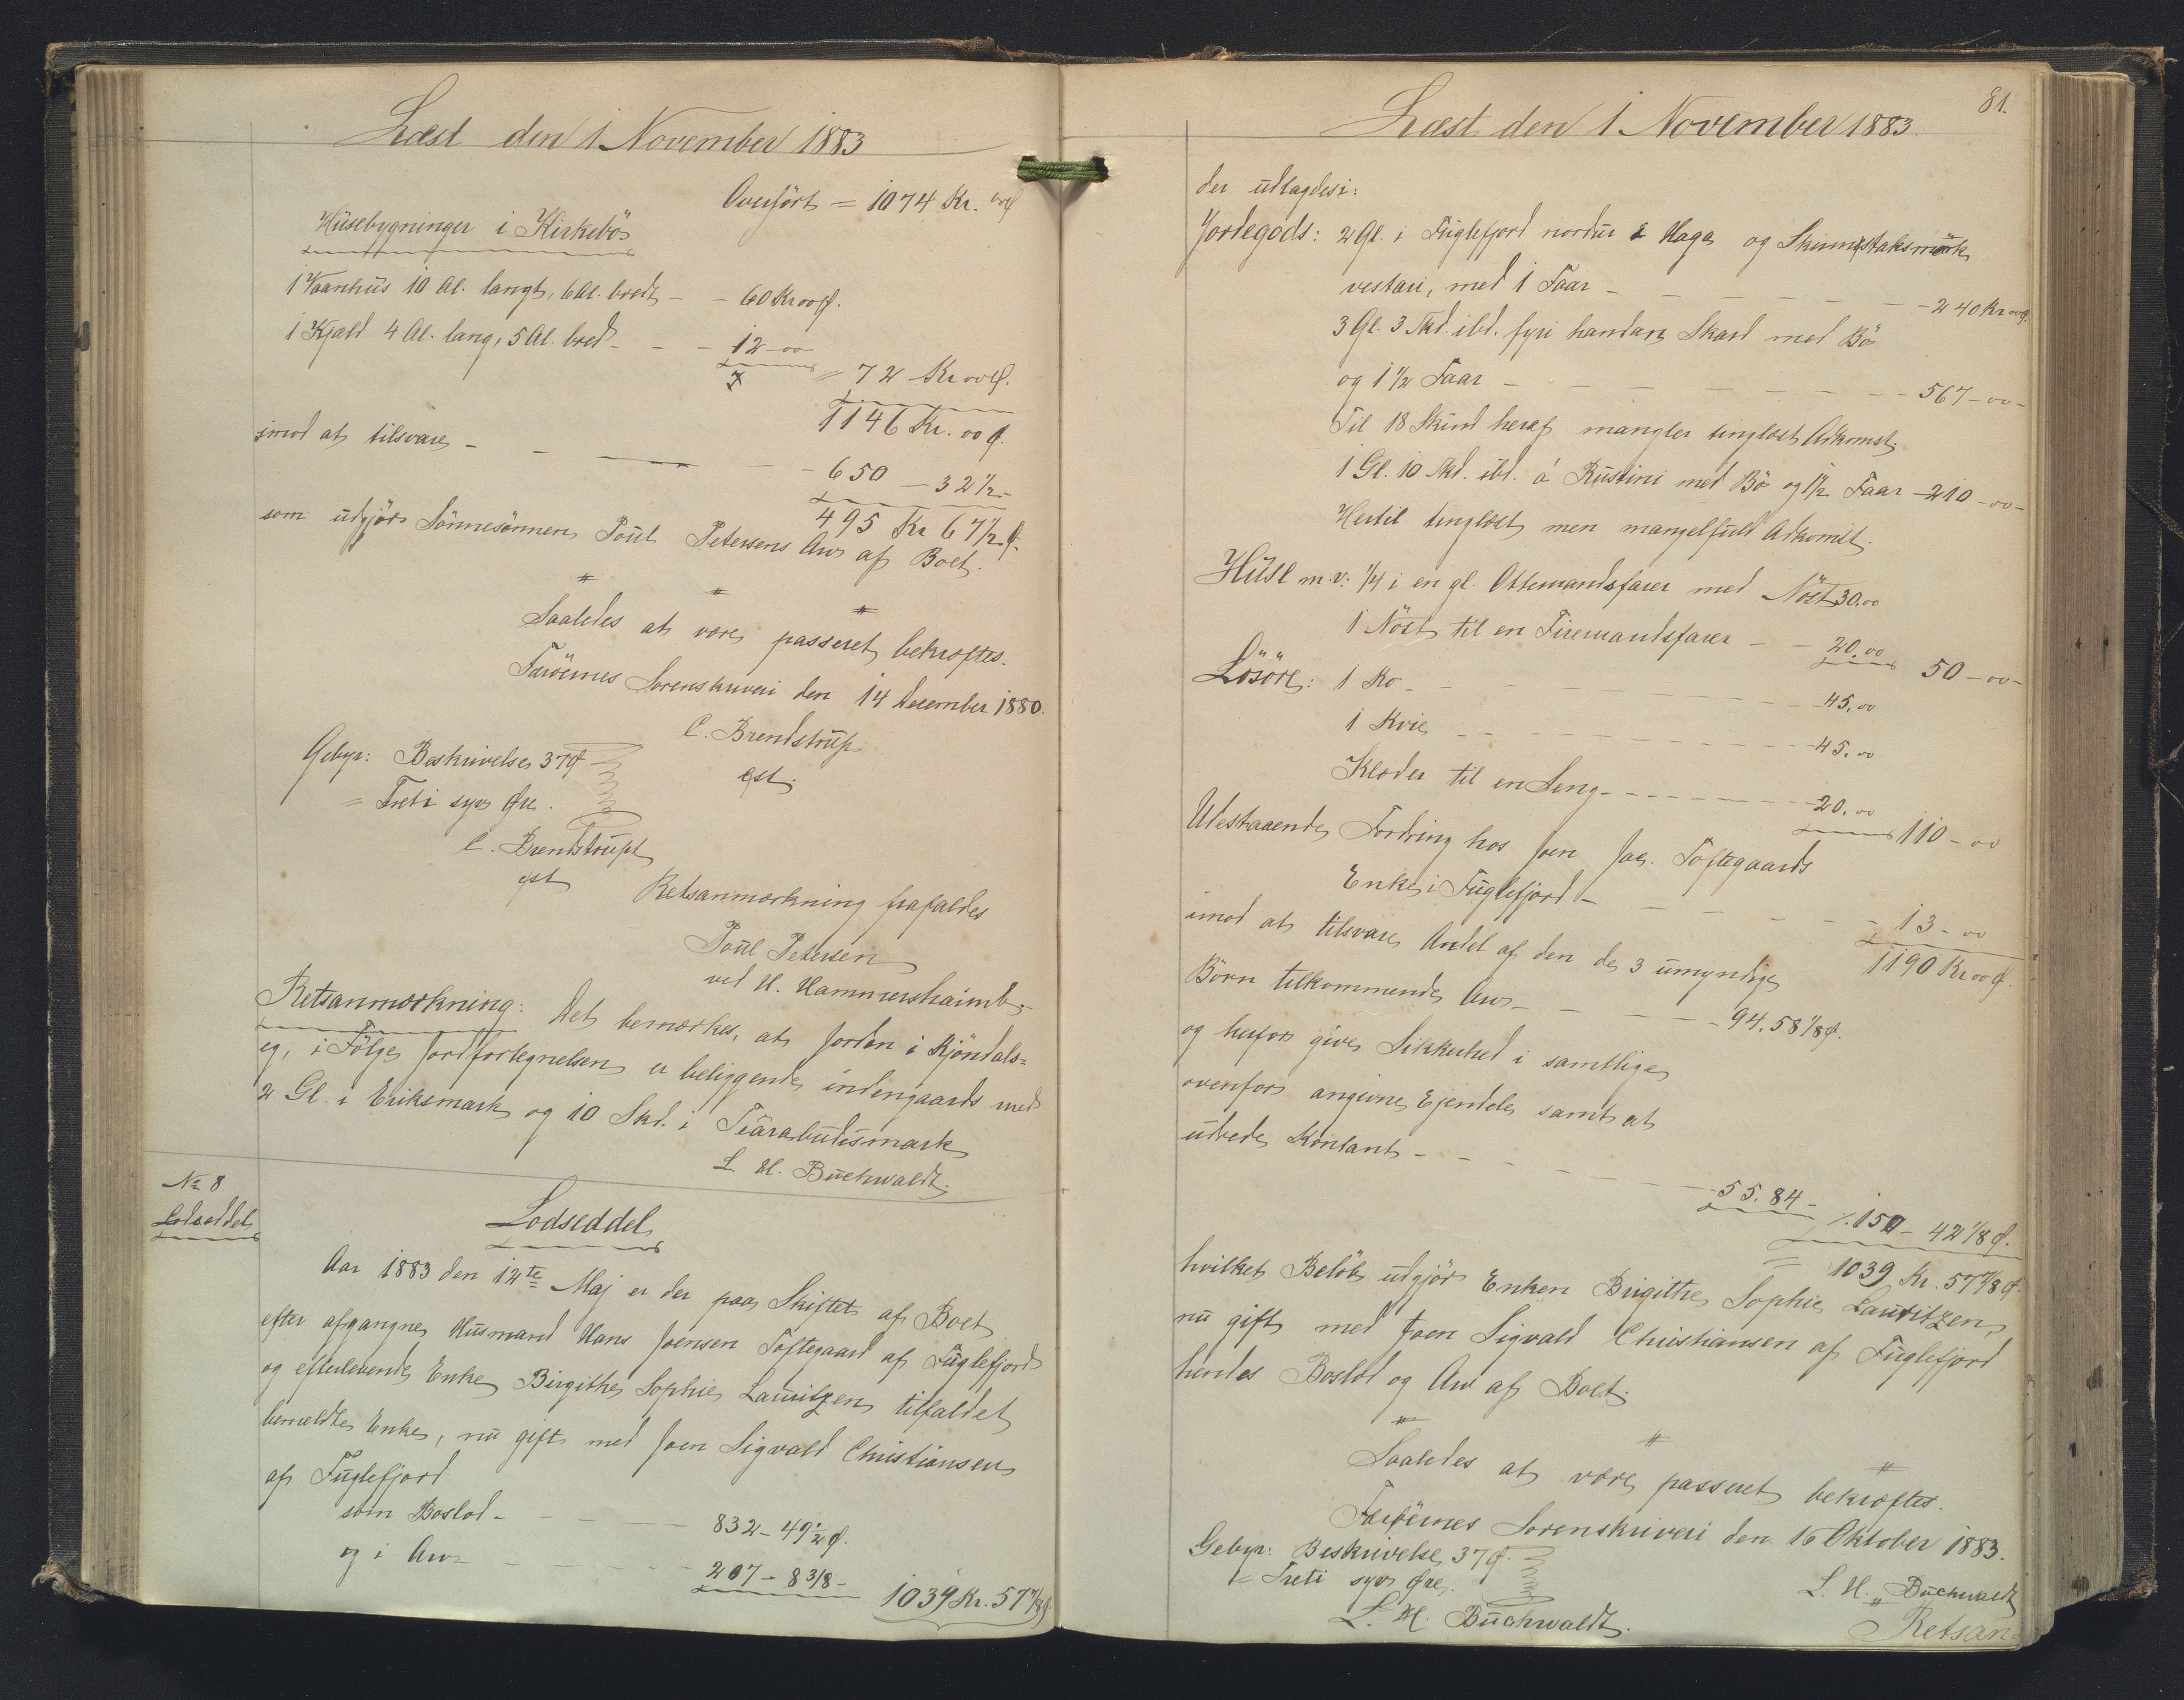 Læst den 1 November 1883
Overført = 1074 Kr. ooø
Husebygninger i Kirkebø
1 Vaanhus 10 Al. langt, 6 Al. bredt - - 60 Kr ooø.
1 Kjæld 4 Al. lang, 5 Al. bred - - - 12 - oo
= 72 Kr ooø.
1146 Kr. oo ø.
imod at tilsvare - - - - 650 - 32 1/2 -
495 Kr 67 1/2 ø.
som udgjør Sønnesønnen Poul Petersens Arv af Boet.
Saaledes at være passeret bekræftes.
Færøernes Sorenskriveri den 14 December 1880.
C. Brendstrup
cst.
Gebyr: Beskrivelse 37 ø
= Treti syv Øre.
C. Brendstrup
cst
Retsanmærkning frafaldes
Poul Petersen
ved H. Hammershaimb.
Retsanmærkning: Det bemærkes, at Jorden i Kjøndals=
eg, i Følge Jordfortegnelsen er beliggende indengaards med
2 Gl. i Eriksmark og 10 Skd. i Tiarabudismark
L. H. Buchwaldt.
No 8
Lodseddel
Lodseddel
Aar 1883 den 12te Maj er der paa Skiftet af Boet
efter afgangne Husmand Hans Joensen Toftegaard af Fuglefjord
og efterlevende Enke Birgithe Sophie Lauritzen tilfaldet
bemeldte Enke, nu gift med Joen Sigvald Christiansen
af Fuglefjord
som Boslod - - - - 832 - 49 1/2 ø.
og i Arv - - - - 207 - 8 3/8 -
1039 Kr. 57 7/8 ø
81.
Læst den 1 November 1883.
der udlagdes i:
Jordegods: 2 Gl. i Fuglefjord nordur i Haga og Skinnistaksmørk
vestari, med 1 Faar - - - - - - 240 Kr ooø.
3 Gl. 3 Skd. ibd. fyri handan Skard med Bø
og 1 1/2 Faar - - - - - - 567 - oo -
Til 18 Skind heraf mangler tinglæst Adkomst.
1 Gl. 10 Skd. ibd. á Rustini med Bø og 1 1/2 Faar - 210 - oo -
Hertil tinglæst men mangelfuld Adkomst.
Huse m. v: 1/4 i en gl. Ottemandsfarer med Nøst 30.oo
1 Nøst til en Firemandsfarer - - 20.oo 50 - oo -
Løsøre: 1 Ko - - - - - - 45.oo
1 Kvie - - - - - - 45.oo
Klæder til en Seng - - - - - - 20.oo 110 - oo
Udestaaende Fordring hos Joen Jac. Toftegaards
Enke i Fuglefjord - - - - - - 13 - oo
1190 Kr oo ø.
imod at tilsvare Andel af den de 3 umyndige
Børn tilkommende Arv - - - - 94.58 1/8 ø.
og herfor give Sikkerhed i samtlige
ovenfor angivne Ejendele samt at
udrede Kontant - - - - - 55.84 - ./. 150 - 42 1/8 ø.
= 1039 Kr. 57 7/8 ø.
hvilket Beløb udgjør Enken Birgithe Sophie Lauritzen,
nu gift med Joen Sigvald Christiansen af Fuglefjord
hendes Boslod og Arv af Boet.
Saaledes at være passeret bekræftes.
Færøernes Sorenskriveri den 16 Oktober 1883.
Gebyr: Beskrivelse 37 ø.
= Treti syv Øre.
L. H. Buchwaldt
L. H. Buchwaldt.
Retsan=